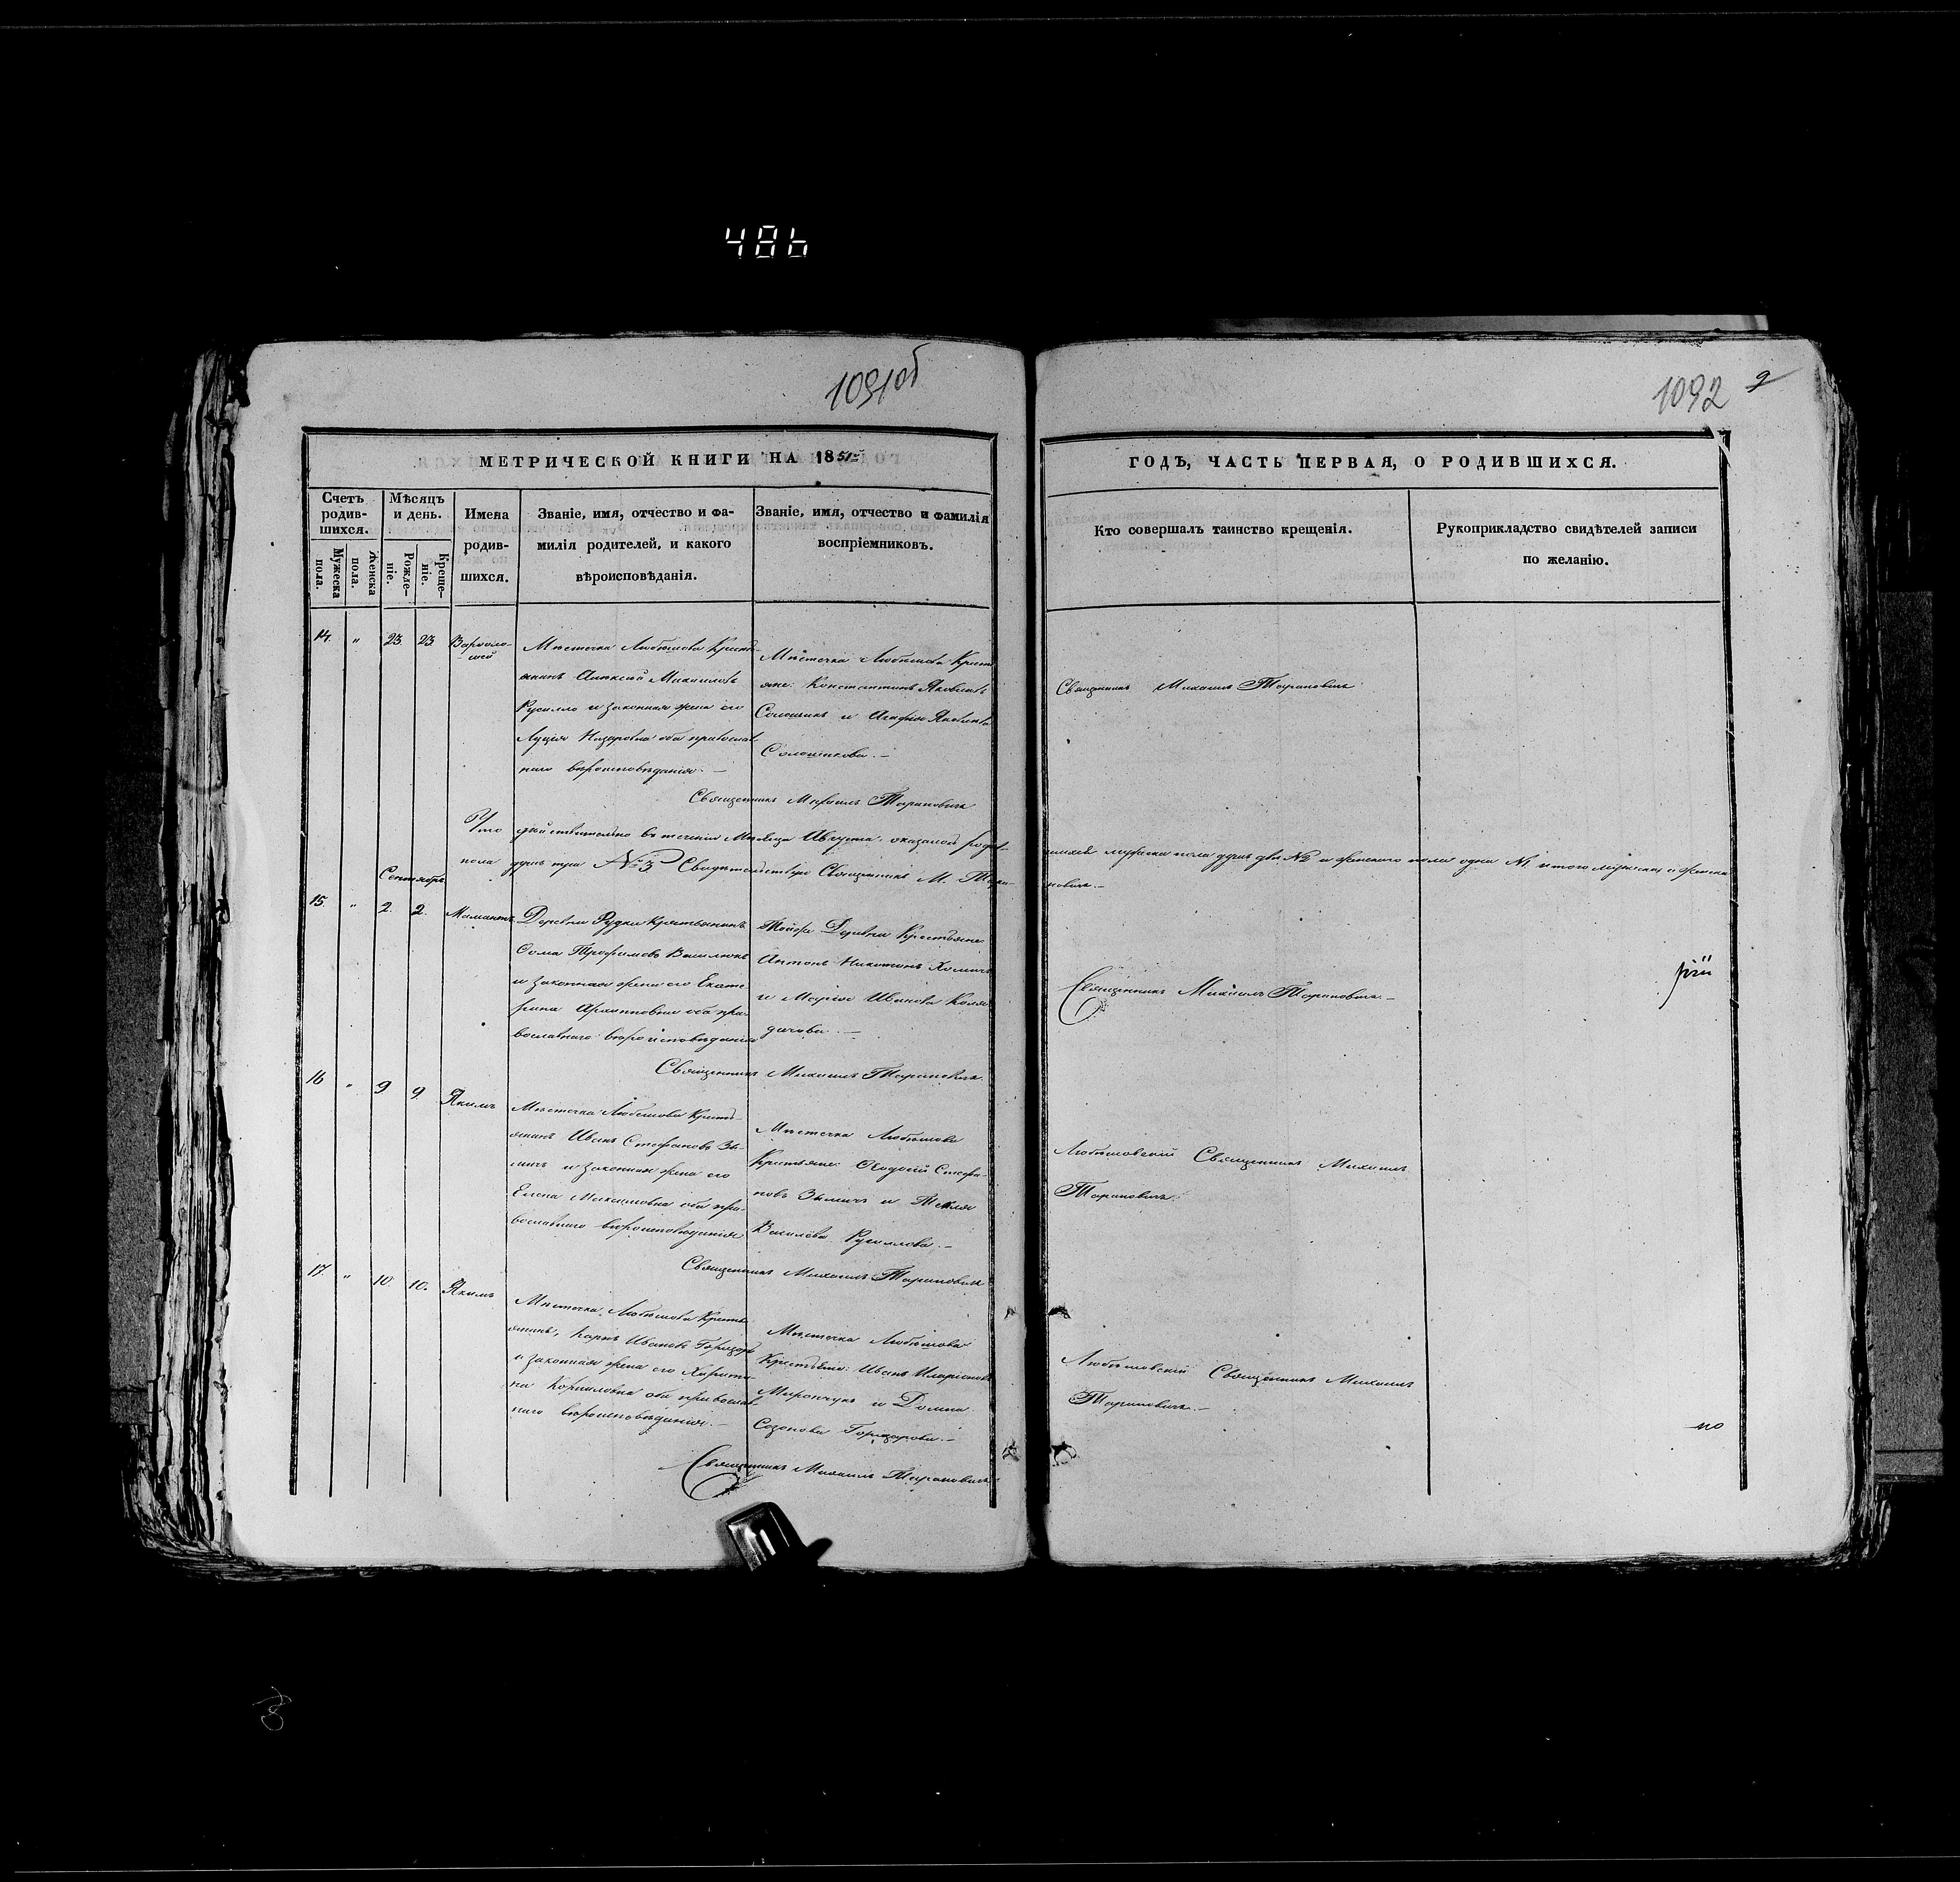 486
1091об
1092 9
МЕТРИЧЕСКОЙ КНИГИ НА 1851
ГОДЪ, ЧАСТЬ ПЕРВАЯ, О РОДИВШИХСЯ.
Счетъ родив-шихся.
Мужеска пола.
Женска пола.
Мѣсяцъ и день.
Рожде-ніе.
Креще-ніе.
Имена
родив-
шихся.
Званіе, имя, отчество и фа-
милія родителей, и какого
вѣроисповѣданія.
Званіе, имя, отчество и фамилія
воспріемниковъ.
Кто совершалъ таинство крещенія.
Рукоприкладство свидѣтелей записи
по желанію.
14. " 23 23 Варѳоло-
-мей
Мѣстечка Любешова Кресть-
янинъ Алексѣй Михаиловъ
Русилло и законная жена его
Луція Назаровна оба православ-
наго вѣроисповѣданія. —
Мѣстечка Любешова Кресть
яне: Константинъ Яковлевъ
и Агафія Яковлева
Священникъ Михаилъ Тарановичъ
Священникъ Михаилъ Тарановичъ
Что дѣйствительно въ теченіи Мѣсяца Августа оказалось родив-
шихся мужеска пола душъ два №2 и женскаго пола одна №1 итого мужеска и женска
пола душъ три №3 Свидѣтельствую Священникъ М. Тара-
новичъ. —
Сентябрь
15. " 2. 2. Мамантъ
Деревни Рудки Крестьянинъ
Ѳома Трофимовъ Василюкъ
и законная жена его Екате
рина Архиповна оба пра-
вославнаго вѣроисповѣданія
Тойже Деревни Крестьяне
Антонъ Никитинъ Хомичъ
и Марія Иванова
Священникъ Михаилъ Тарановичъ. —
Священникъ Михаилъ Тарановичъ.
16 " 9 9. Якимъ
Мѣстечка Любешова Кресть-
янинъ Иванъ Стефановъ
и законная жена его
Елена Максимовна оба пра-
вославнаго вѣроисповѣданія
Мѣстечка Любешова
Крестьяне: Ѳеодосій Стефа-
новъ и Текля
Василева Русиллова. —
Любешовскій Священникъ Михаилъ
Тарановичъ.
Священникъ Михаилъ Тарановичъ
17. " 10. 10. Якимъ
Мѣстечка Любешова Кресть
янинъ, Карпъ Ивановъ
и законная жена его Христи-
на Корниловна оба православ-
наго вѣроисповѣданія. —
Мѣстечка Любешова
Крестьяне: Иванъ Иларіоновъ
Мирончукъ и Домна
Созонова
Любешовскій Священникъ Михаилъ
Тарановичъ. —
Священникъ Михаилъ Тарановичъ